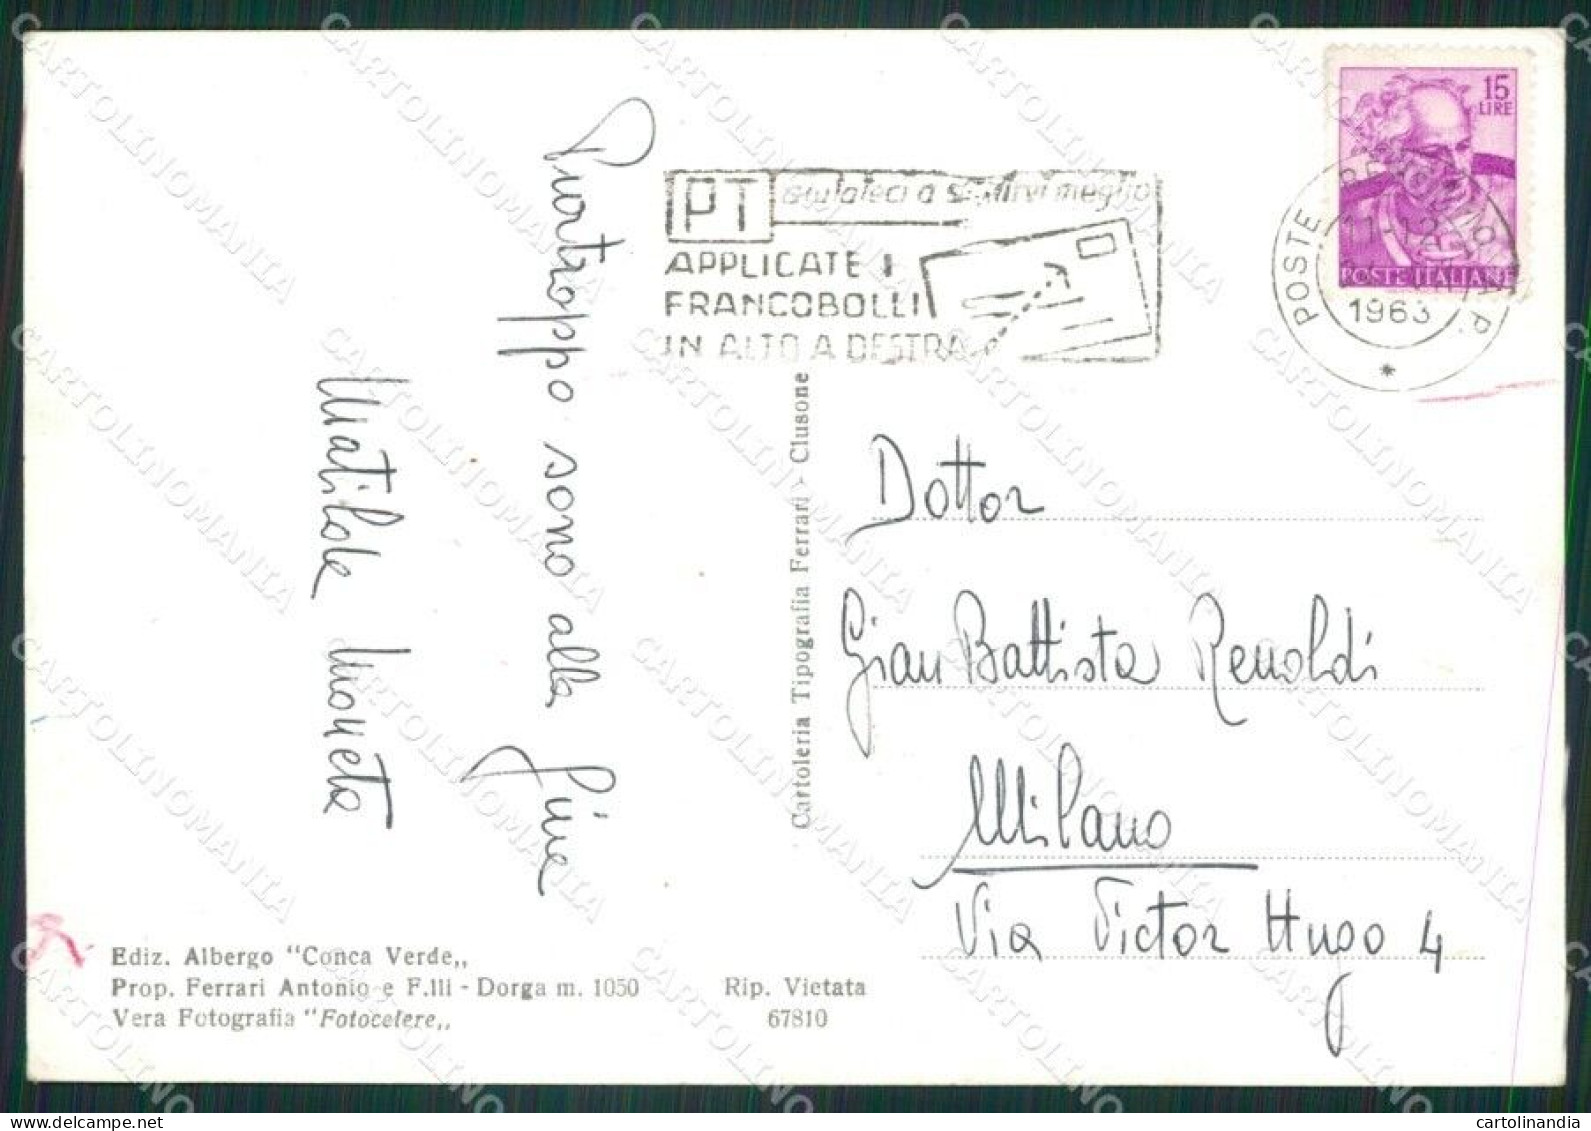 15
LIRE
POSTE ITALIANE
POSTE
1963
PT aiutateci a servirvi meglio
APPLICATE I
FRANCOBOLLI
IN ALTO A DESTRA
Purtroppo sono alla fine
Matilde Moneta
Cartoleria Tipografia Ferrari - Clusone
Dottor
Gian Battista Renoldi
Milano
Via Victor Hugo 4
Ediz. Albergo "Conca Verde,,
Prop. Ferrari Antonio e F.lli - Dorga m. 1050
Vera Fotografia "Fotocelere,,
Rip. Vietata
67810
CARTOLINOMANIA
cartolinandia